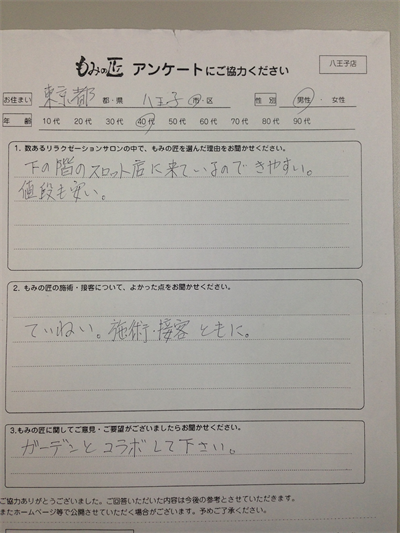 もみの匠 アンケートにご協力ください 八王子店
お住まい 東京都 都・県 八王子 市・区 性別 男性・女性
年齢 10代 20代 30代 40代 50代 60代 70代 80代 90代
1. 数あるリラクゼーションサロンの中で、もみの匠を選んだ理由をお聞かせください。
下の階のスロット店に来ているのできやすい。
値段も安い。
2. もみの匠の施術・接客について、よかった点をお聞かせください。
ていねい。施術・接客ともに。
3.もみの匠に関してご意見・ご要望がございましたらお聞かせください。
ガーデンとコラボして下さい。
ご協力ありがとうございました。ご回答いただいた内容は今後の参考とさせていただきます。
またホームページ等で公開させていただく場合がございます。予めご了承ください。